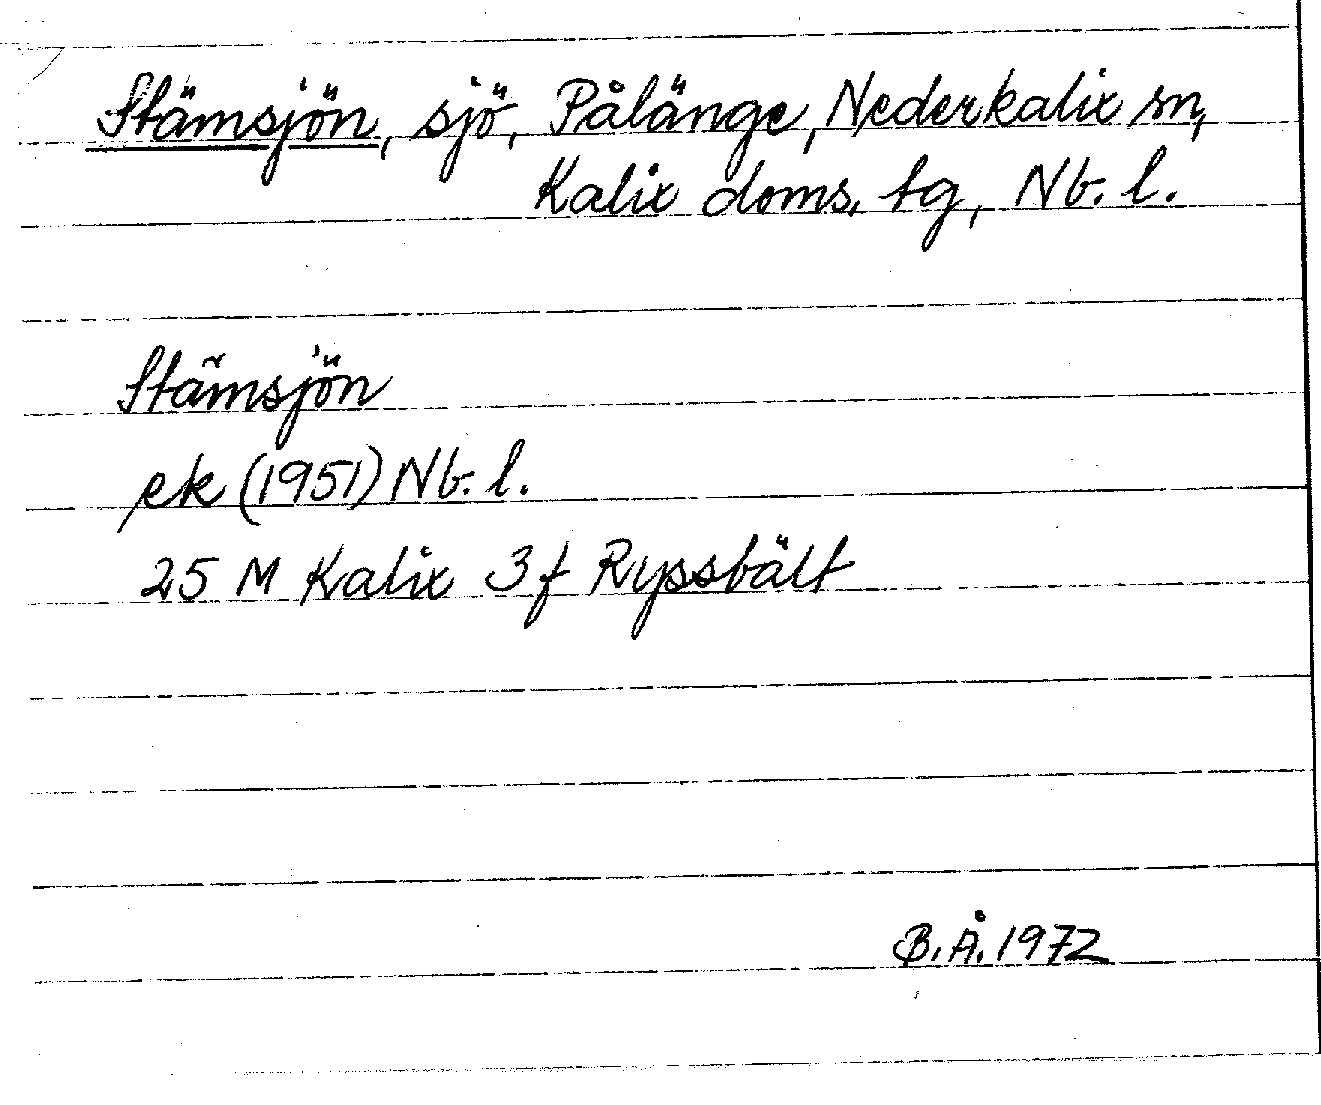 Stämsjön, sjö, Pålänge, Nederkalix sn,
Kalix doms. tg, Nb. l.
Stämsjön
ek (1951) Nb. l.
25 M Kalix 3 f Ryssbält
B. Å. 1972